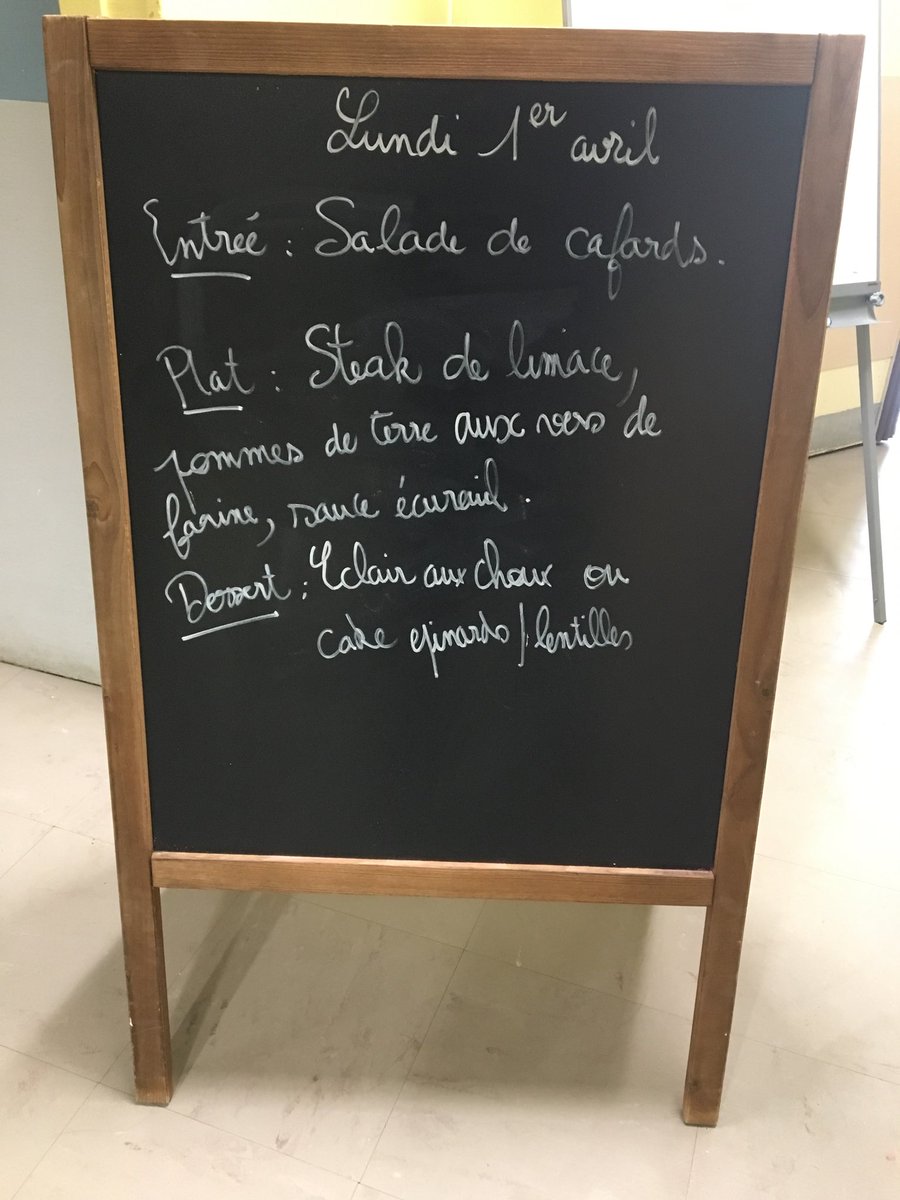 Lundi 1er avril
Entrée : Salade de cafards.
Plat : Steak de limace,
pommes de terre aux vers de
farine, sauce écureuil.
Dessert : Eclair aux choux ou
cake épinards/lentilles